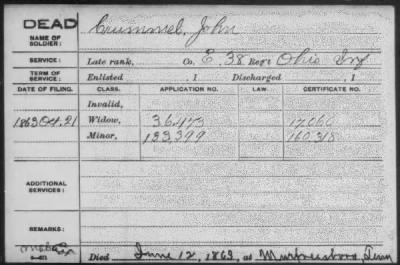 DEAD
NAME OF SOLDIER: Crummel, John
SERVICE: Late rank, Co. E. 38 Reg't Ohio Inf
TERM OF SERVICE: Enlisted , 1 Discharged , 1
DATE OF FILING. CLASS. APPLICATION NO. LAW. CERTIFICATE NO.
Invalid,
1863 Oct. 21 Widow, 36,473 17,060
Minor, 133,399 160,318
ADDITIONAL SERVICES:
REMARKS:
Died June 12, 1863, at Murfreesboro, Tenn